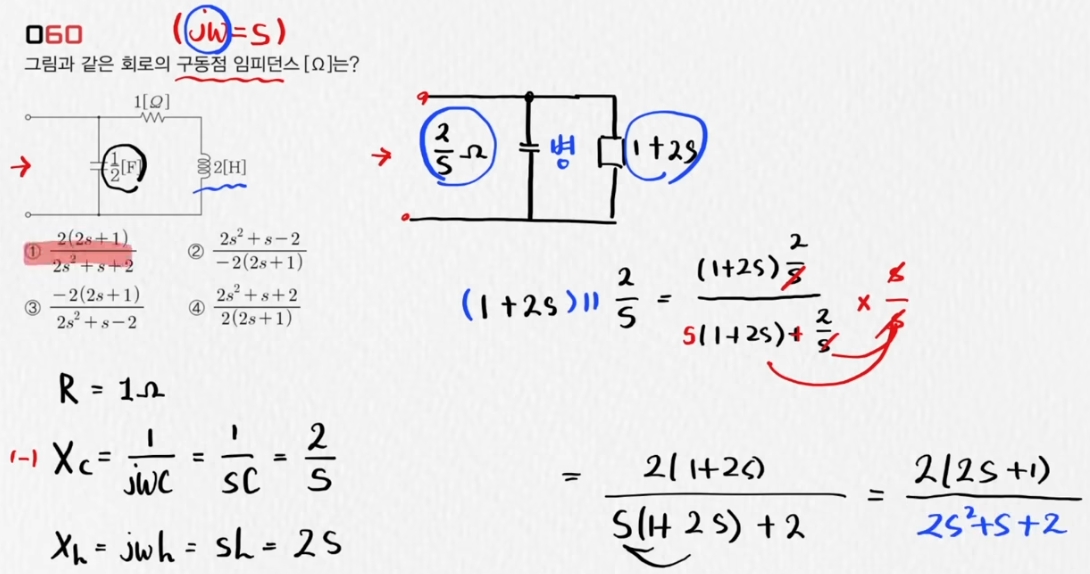 060 (jw=s)
그림과 같은 회로의 구동점 임피던스[Ω]는?
1[Ω]
1/2[F]
2[H]
2/s Ω 병 1+2s
① 2(2s+1)/2s²+s+2
② 2s²+s-2/-2(2s+1)
③ -2(2s+1)/2s²+s-2
④ 2s²+s+2/2(2s+1)
(1+2s)|| 2/s = (1+2s)2/s / s(1+2s)+2/s × s/s
R = 1Ω
(-) Xc = 1/jwc = 1/sC = 2/s
XL = jwL = sL = 2s
= 2(1+2s)/s(1+2s)+2 = 2(2s+1)/2s²+s+2